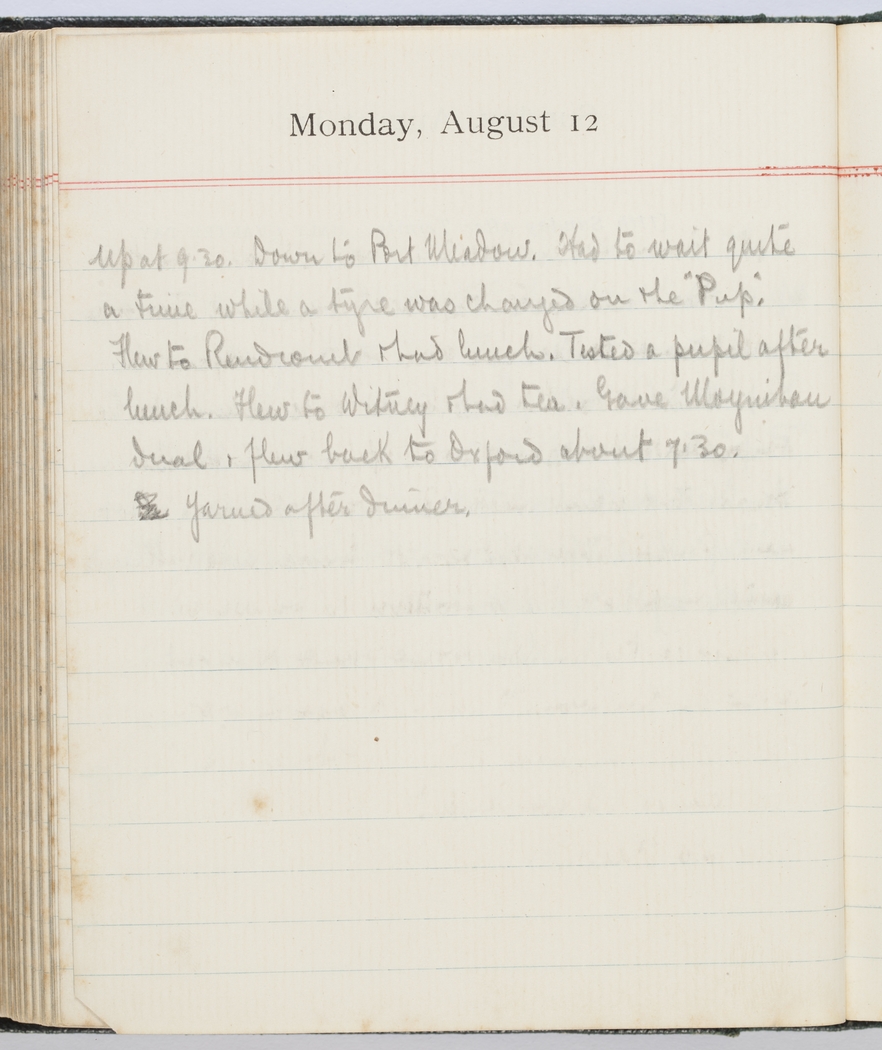 Monday, August 12
Up at 9.30. Down to Port Meadow. Had to wait quite
a time while a tyre was changed on the "Pup".
Flew to Rendcomb & had lunch. Tested a pupil after
lunch. Flew to Witney & had tea. Gave Moynihan
dual & flew back to Oxford about 7.30.
Yarned after dinner.